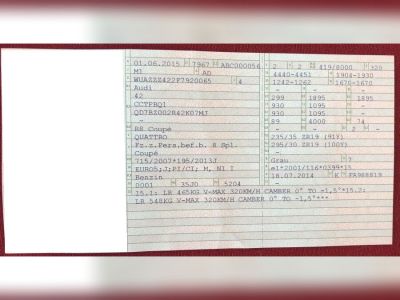 01.06.2015 7967 ABC000056 2 2 419/8000
M1 AD 4440-4451 1904-1930
WUAZZZ422F7920065 4 1242-1262 1670-1670
Audi - - -
42 299 1895 1895
CCTPBQ1 930 1095 -
QD7BZ002R42K07MJ 930 1095 -
- 89 4000 74
R8 Coupé - - 2 -
QUATTRO 235/35 ZR19 (91Y)
Fz.z.Pers.bef.b. 8 Spl. 295/30 ZR19 (100Y)
Coupé -
715/2007*195/2013J Grau 7
EURO5;J;PI/CI; M, N1 I e1*2001/116*0399*15
Benzin 18.07.2014 K FA988819
0001 35J0 5204 -
15.1: LR 465KG V-MAX 320KM/H CAMBER 0° TO -1,5°*15.2:
LR 548KG V-MAX 320KM/H CAMBER 0° TO -1,5°***